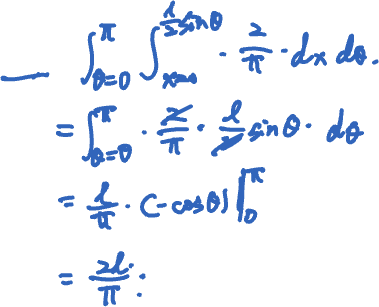 — ∫_{θ=0}^{π} ∫_{x=0}^{l/2 sinθ} · 2/π · dx dθ.
= ∫_{θ=0}^{π} · 2/π · l/2 sinθ · dθ
= l/π · (-cosθ) |_0^π
= 2l/π .